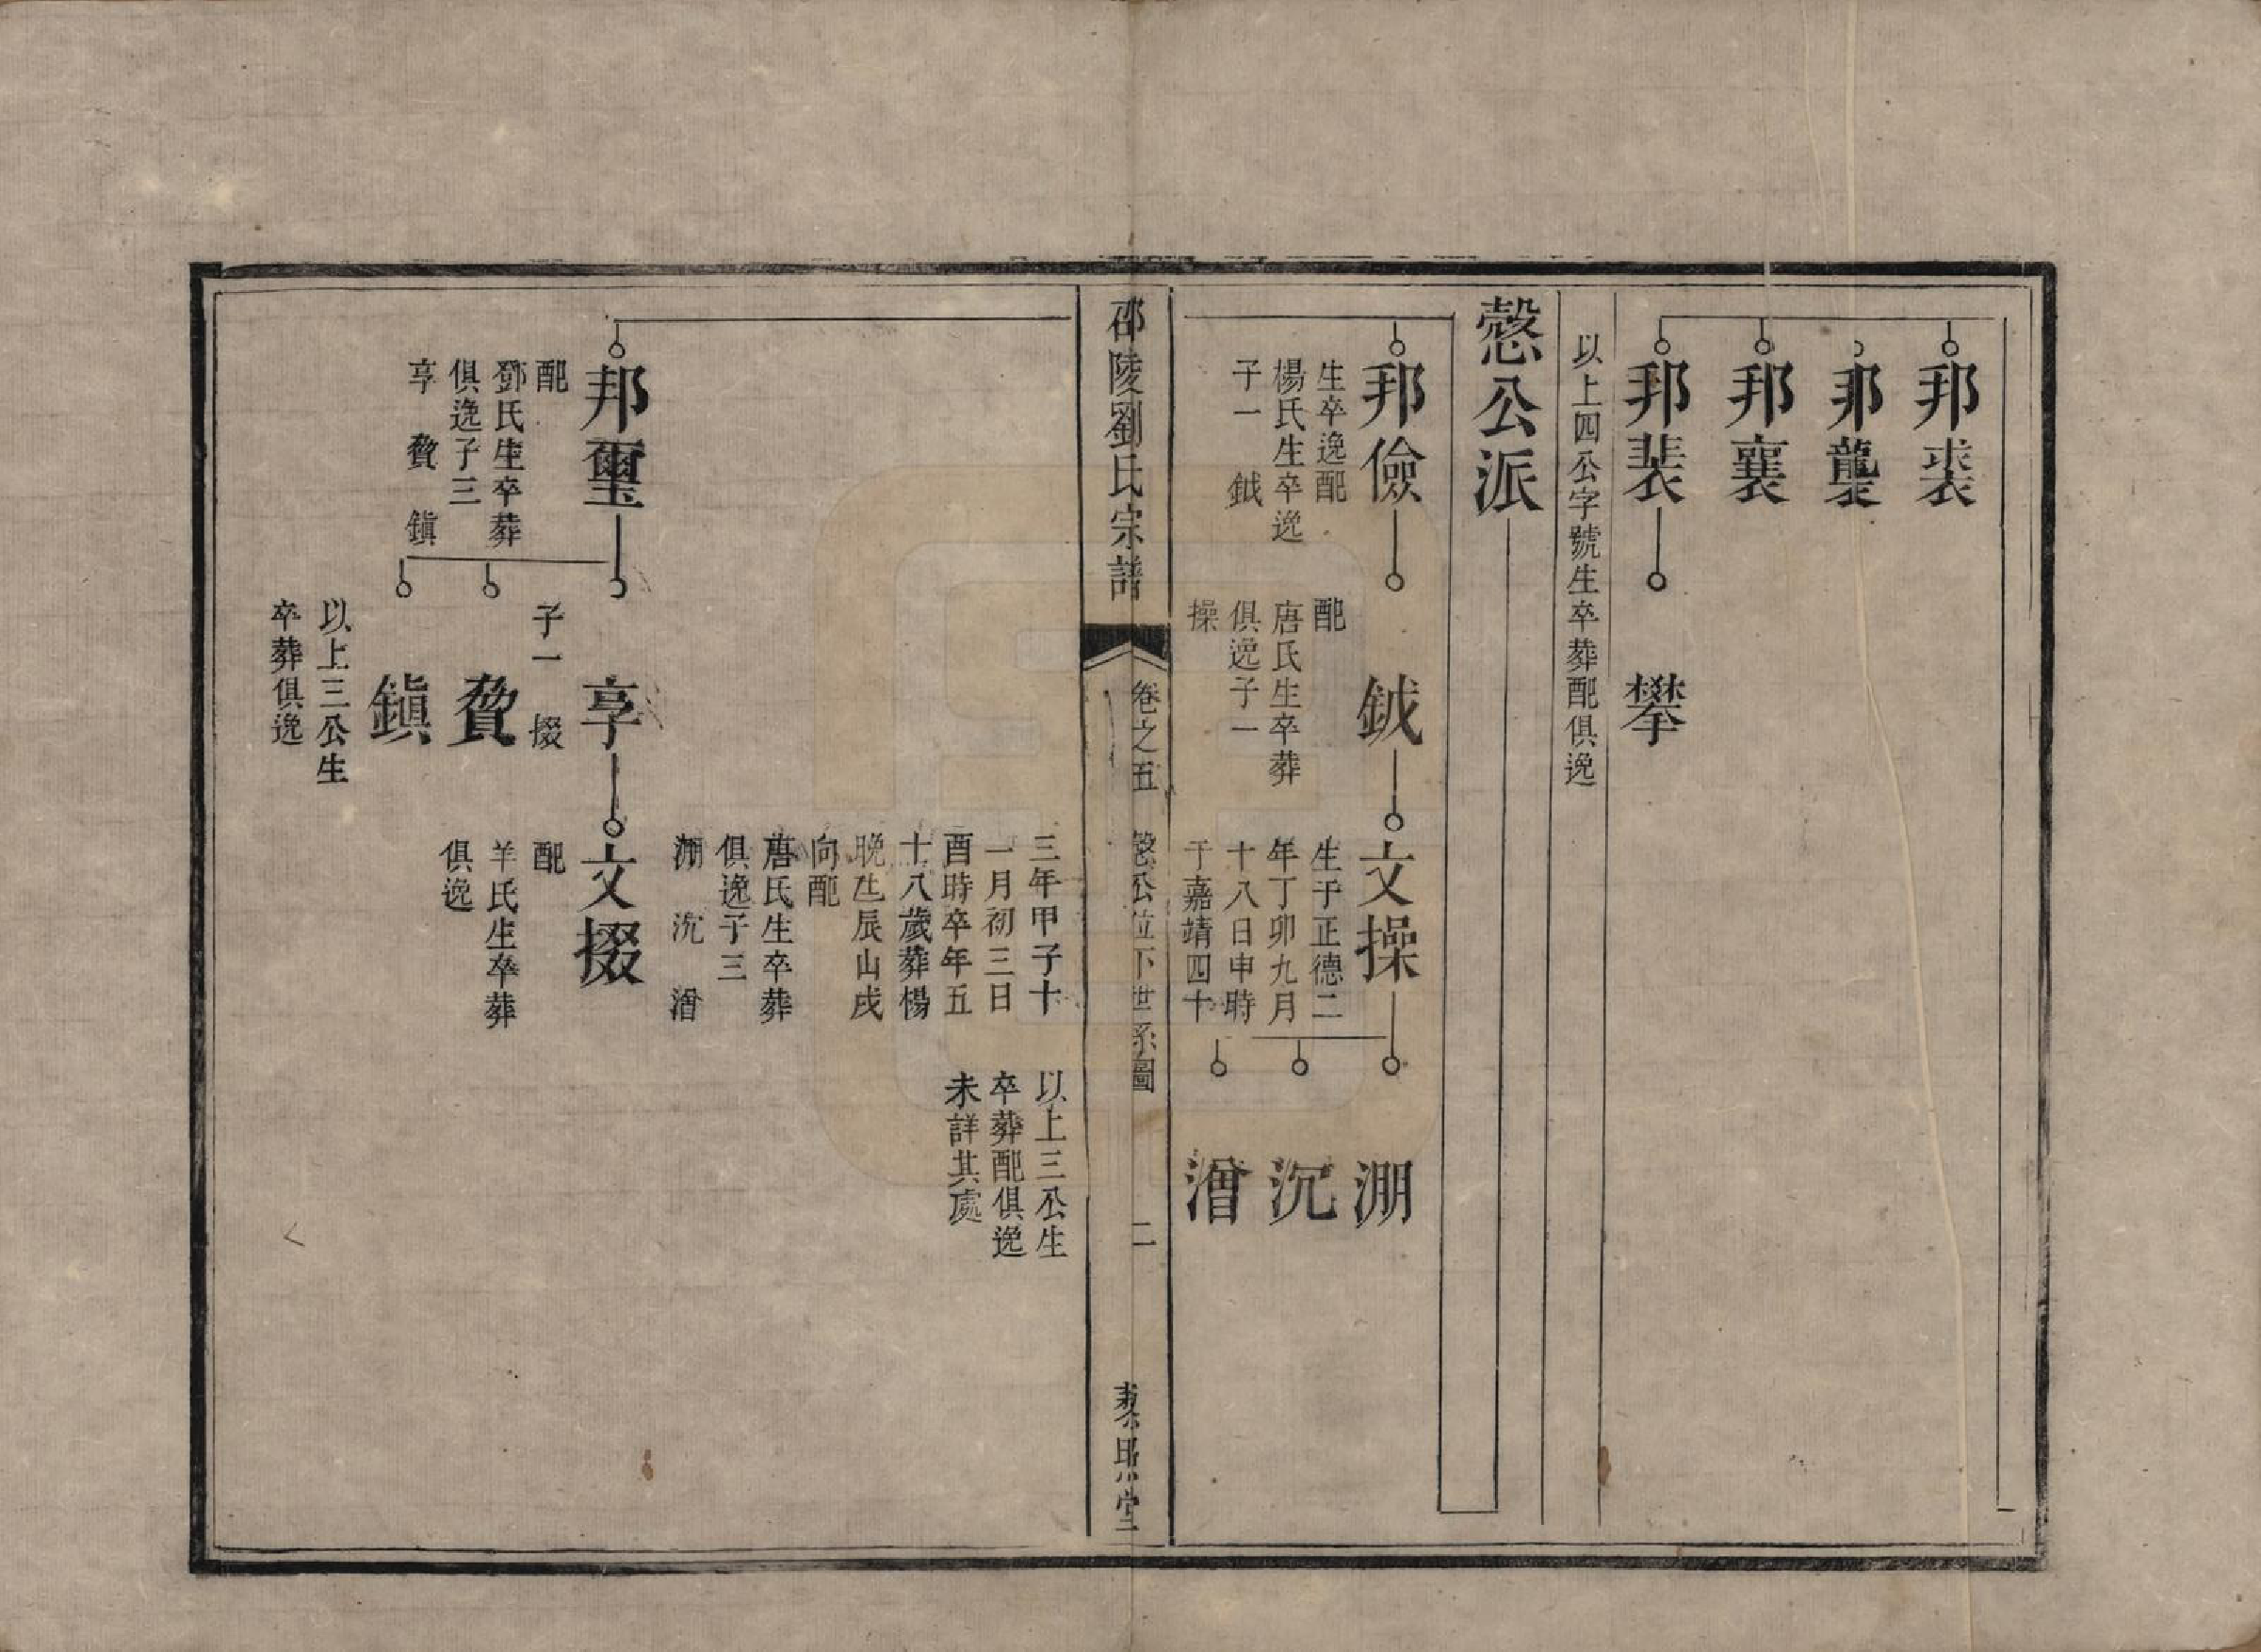 邦裘
邦襲
邦襄
邦裴
攀
以上四公字號生卒葬配俱逸
愨公派
邦儉
生卒逸配
楊氏生卒逸
子一 鉞
鉞
配
唐氏生卒葬
俱逸子一
操
文操
生于正德二
年丁卯九月
十八日申時
于嘉靖四十
淜
沉
潧
邵陵劉氏宗譜
卷之五
愨公位下世系圖
二
藜照堂
三年甲子十
一月初三日
酉時卒年五
十八歲葬楊
晚辰山戌
向配
唐氏生卒葬
俱逸子三
淜 沉 潧
以上三公生
卒葬配俱逸
未詳其處
邦璽
配
鄧氏生卒葬
俱逸子三
享 鎮
享
子一 掇
鎮
以上三公生
卒葬俱逸
文掇
配
羊氏生卒葬
俱逸